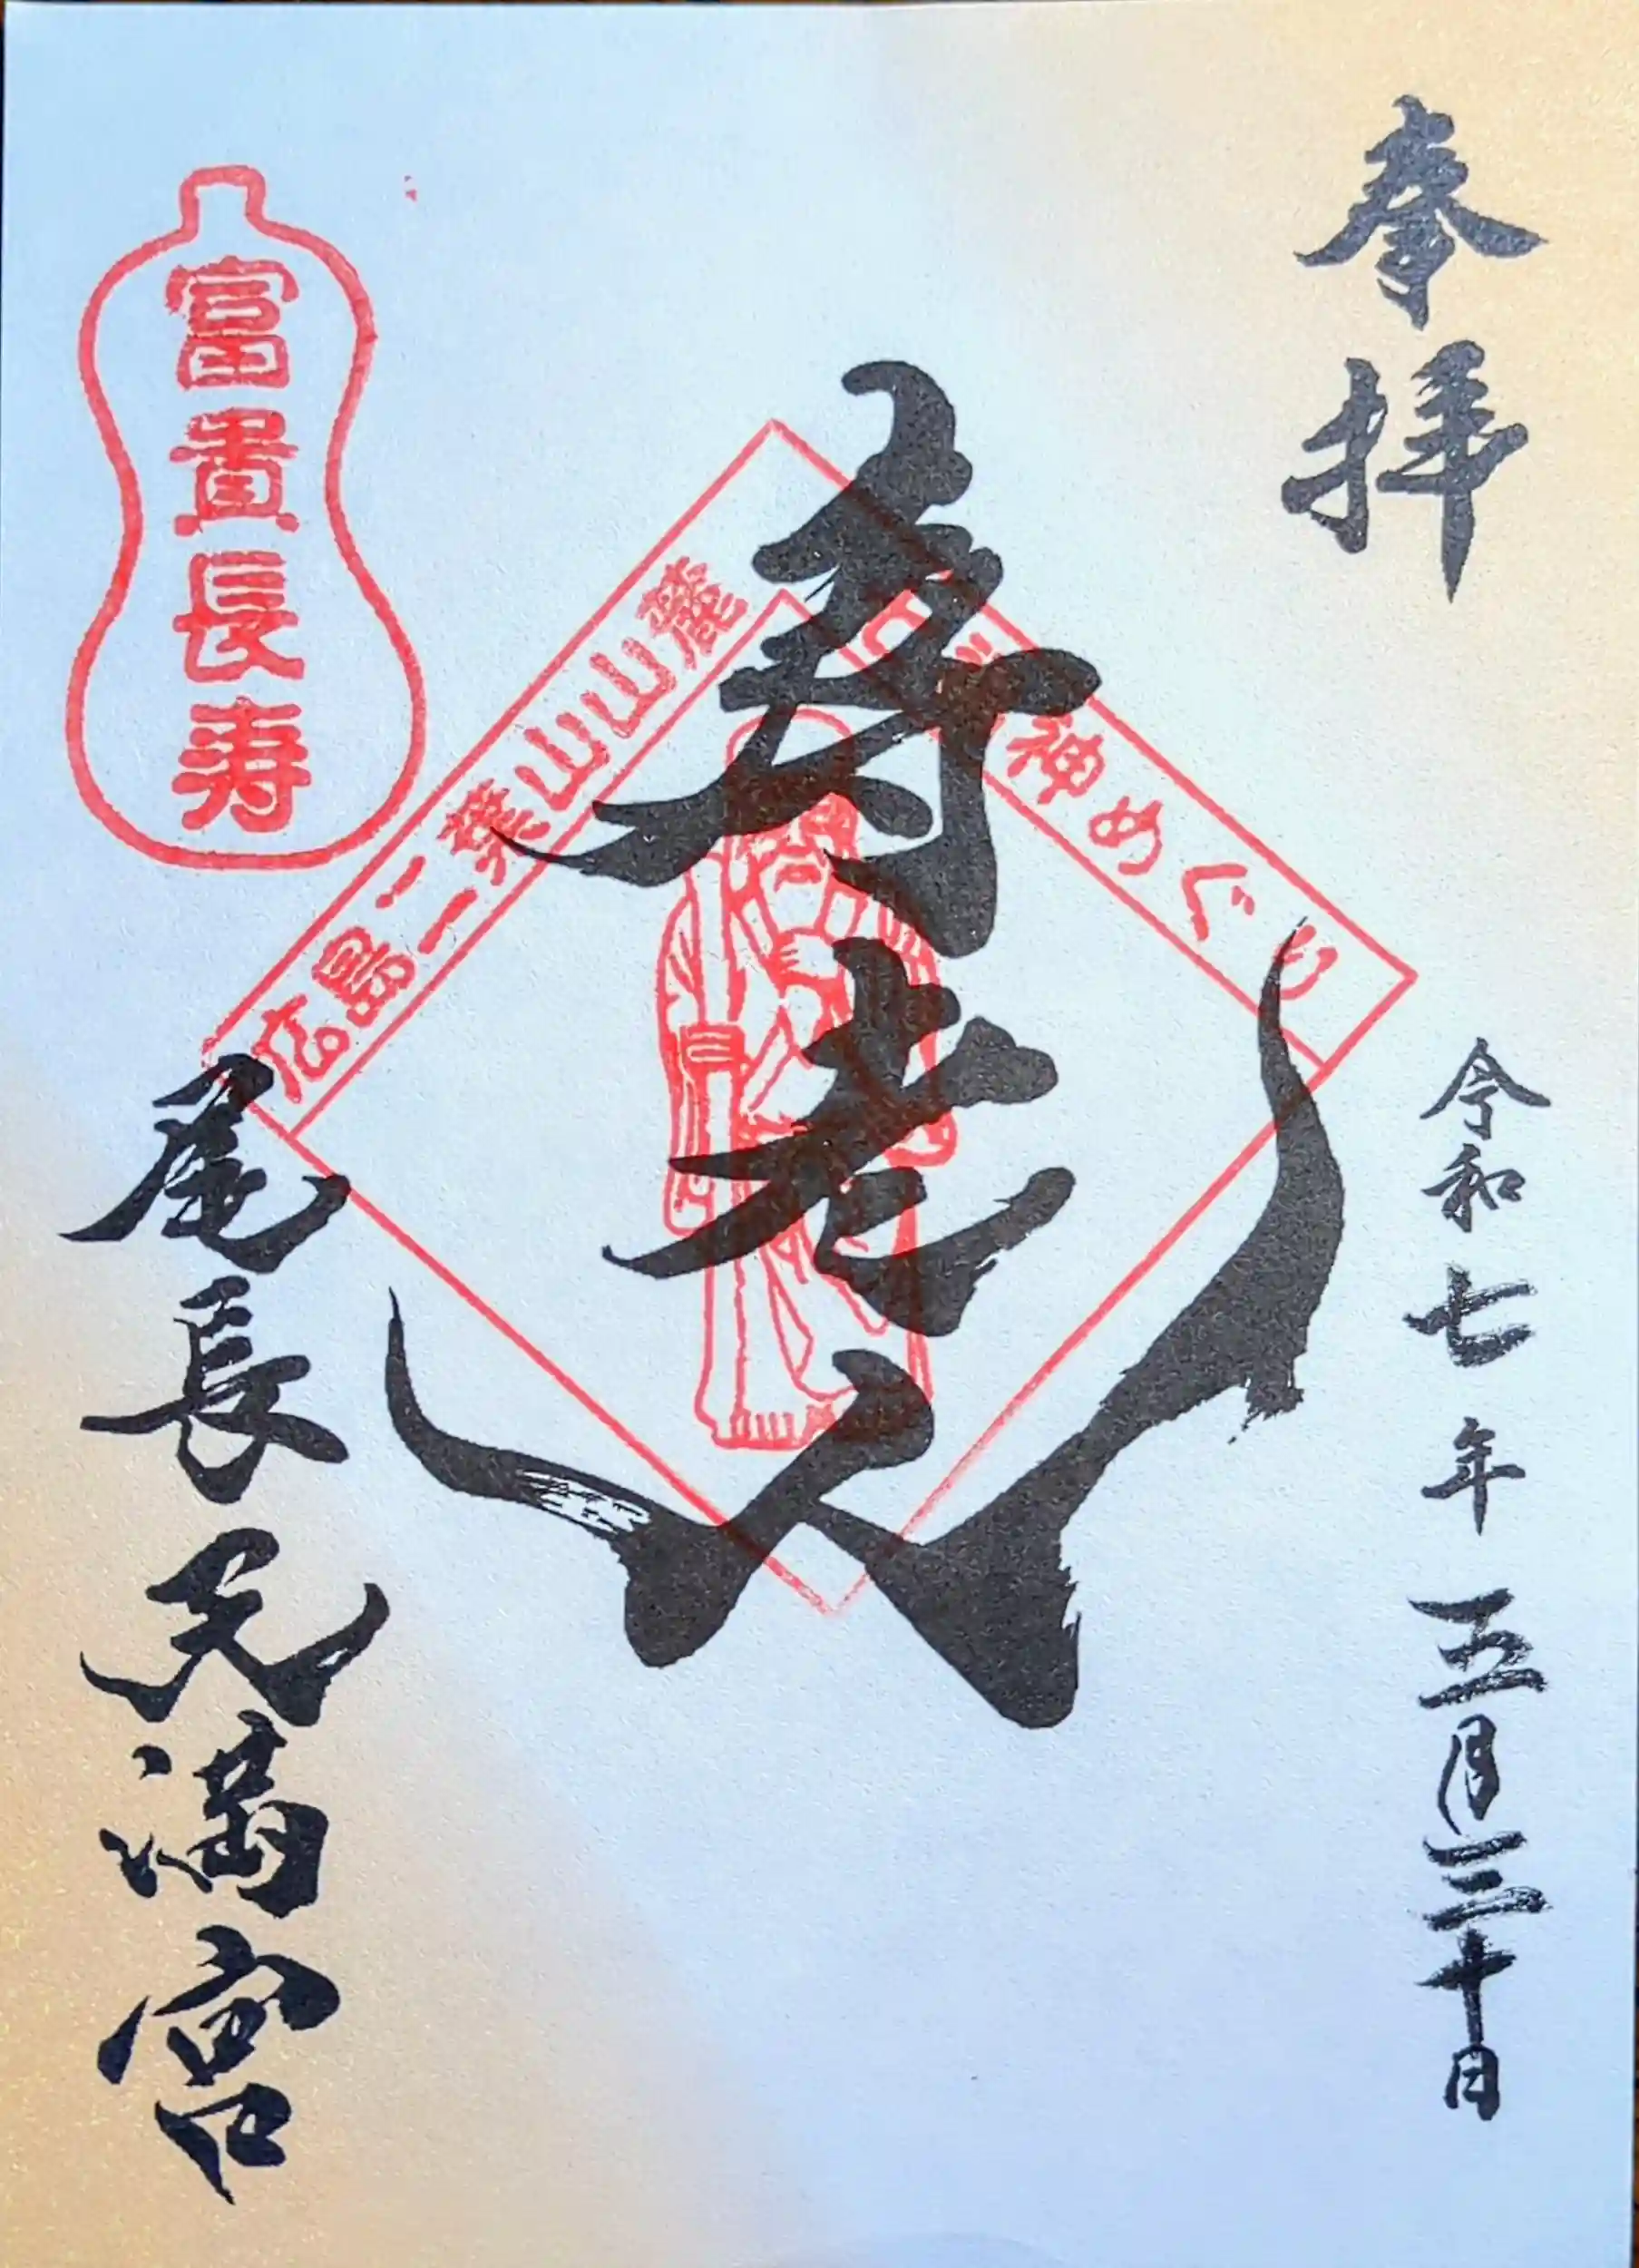 奉拝
令和七年五月三十日
寿老人
広島二葉山山麓
神めぐり
富貴長寿
尾長天満宮